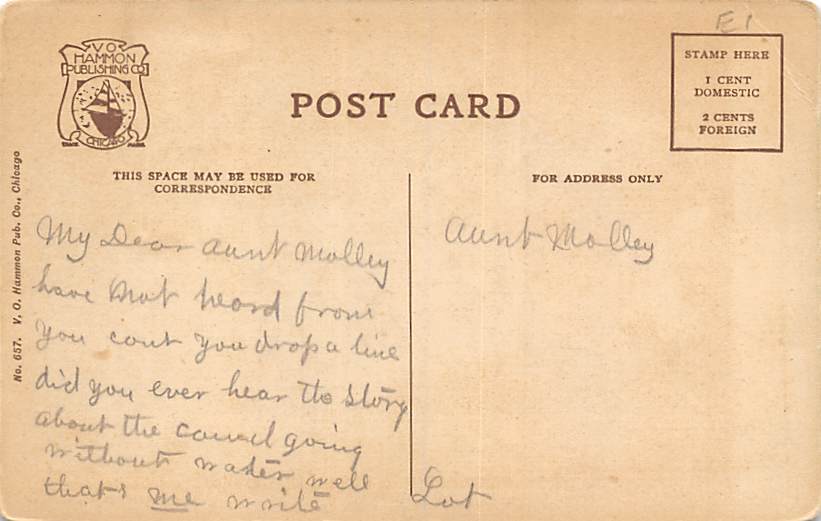 E1
V O
HAMMON
PUBLISHING CO
CHICAGO
TRADE MARK
POST CARD
STAMP HERE
1 CENT
DOMESTIC
2 CENTS
FOREIGN
THIS SPACE MAY BE USED FOR
CORRESPONDENCE
FOR ADDRESS ONLY
No. 657. V. O. Hammon Pub. Co., Chicago
My Dear Aunt Molley
have not heard from
you cont you drop a line
did you ever hear the story
about the camel going
without water well
that's me write
Lot
Aunt Molley